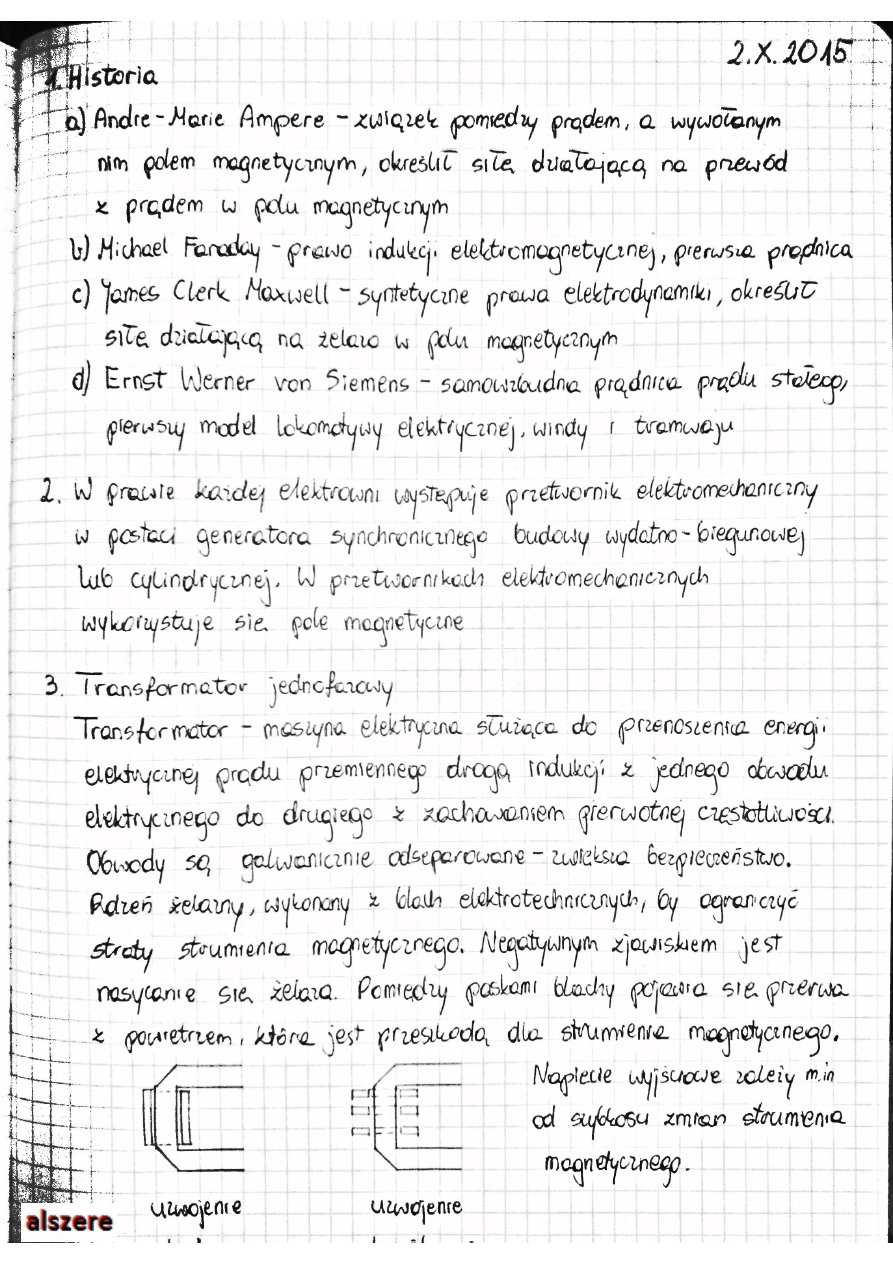 2.X.2015
1. Historia
a) Andre-Marie Ampere - związek pomiędzy prądem, a wywołanym
nim polem magnetycznym, określił siłę działającą na przewód
z prądem w polu magnetycznym
b) Michael Faraday - prawo indukcji elektromagnetycznej, pierwsza prądnica
c) James Clerk Maxwell - syntetyczne prawa elektrodynamiki, określił
siłę działającą na żelazo w polu magnetycznym
d) Ernst Werner von Siemens - samowzbudna prądnica prądu stałego,
pierwszy model lokomotywy elektrycznej, windy i tramwaju
2. W prawie każdej elektrowni występuje przetwornik elektromechaniczny
w postaci generatora synchronicznego budowy wydatno-biegunowej
lub cylindrycznej. W przetwornikach elektromechanicznych
wykorzystuje się pole magnetyczne
3. Transformator jednofazowy
Transformator - maszyna elektryczna służąca do przenoszenia energii
elektrycznej prądu przemiennego drogą indukcji z jednego obwodu
elektrycznego do drugiego z zachowaniem pierwotnej częstotliwości.
Obwody są galwanicznie odseparowane - zwiększa bezpieczeństwo.
Rdzeń żelazny, wykonany z blach elektrotechnicznych, by ograniczyć
straty strumienia magnetycznego. Negatywnym zjawiskiem jest
nasycanie się żelaza. Pomiędzy paskami blachy pojawia się przerwa
z powietrzem, która jest przeszkodą dla strumienia magnetycznego.
Napięcie wyjściowe zależy m.in
od szybkości zmian strumienia
magnetycznego.
uzwojenie uzwojenie
alszere